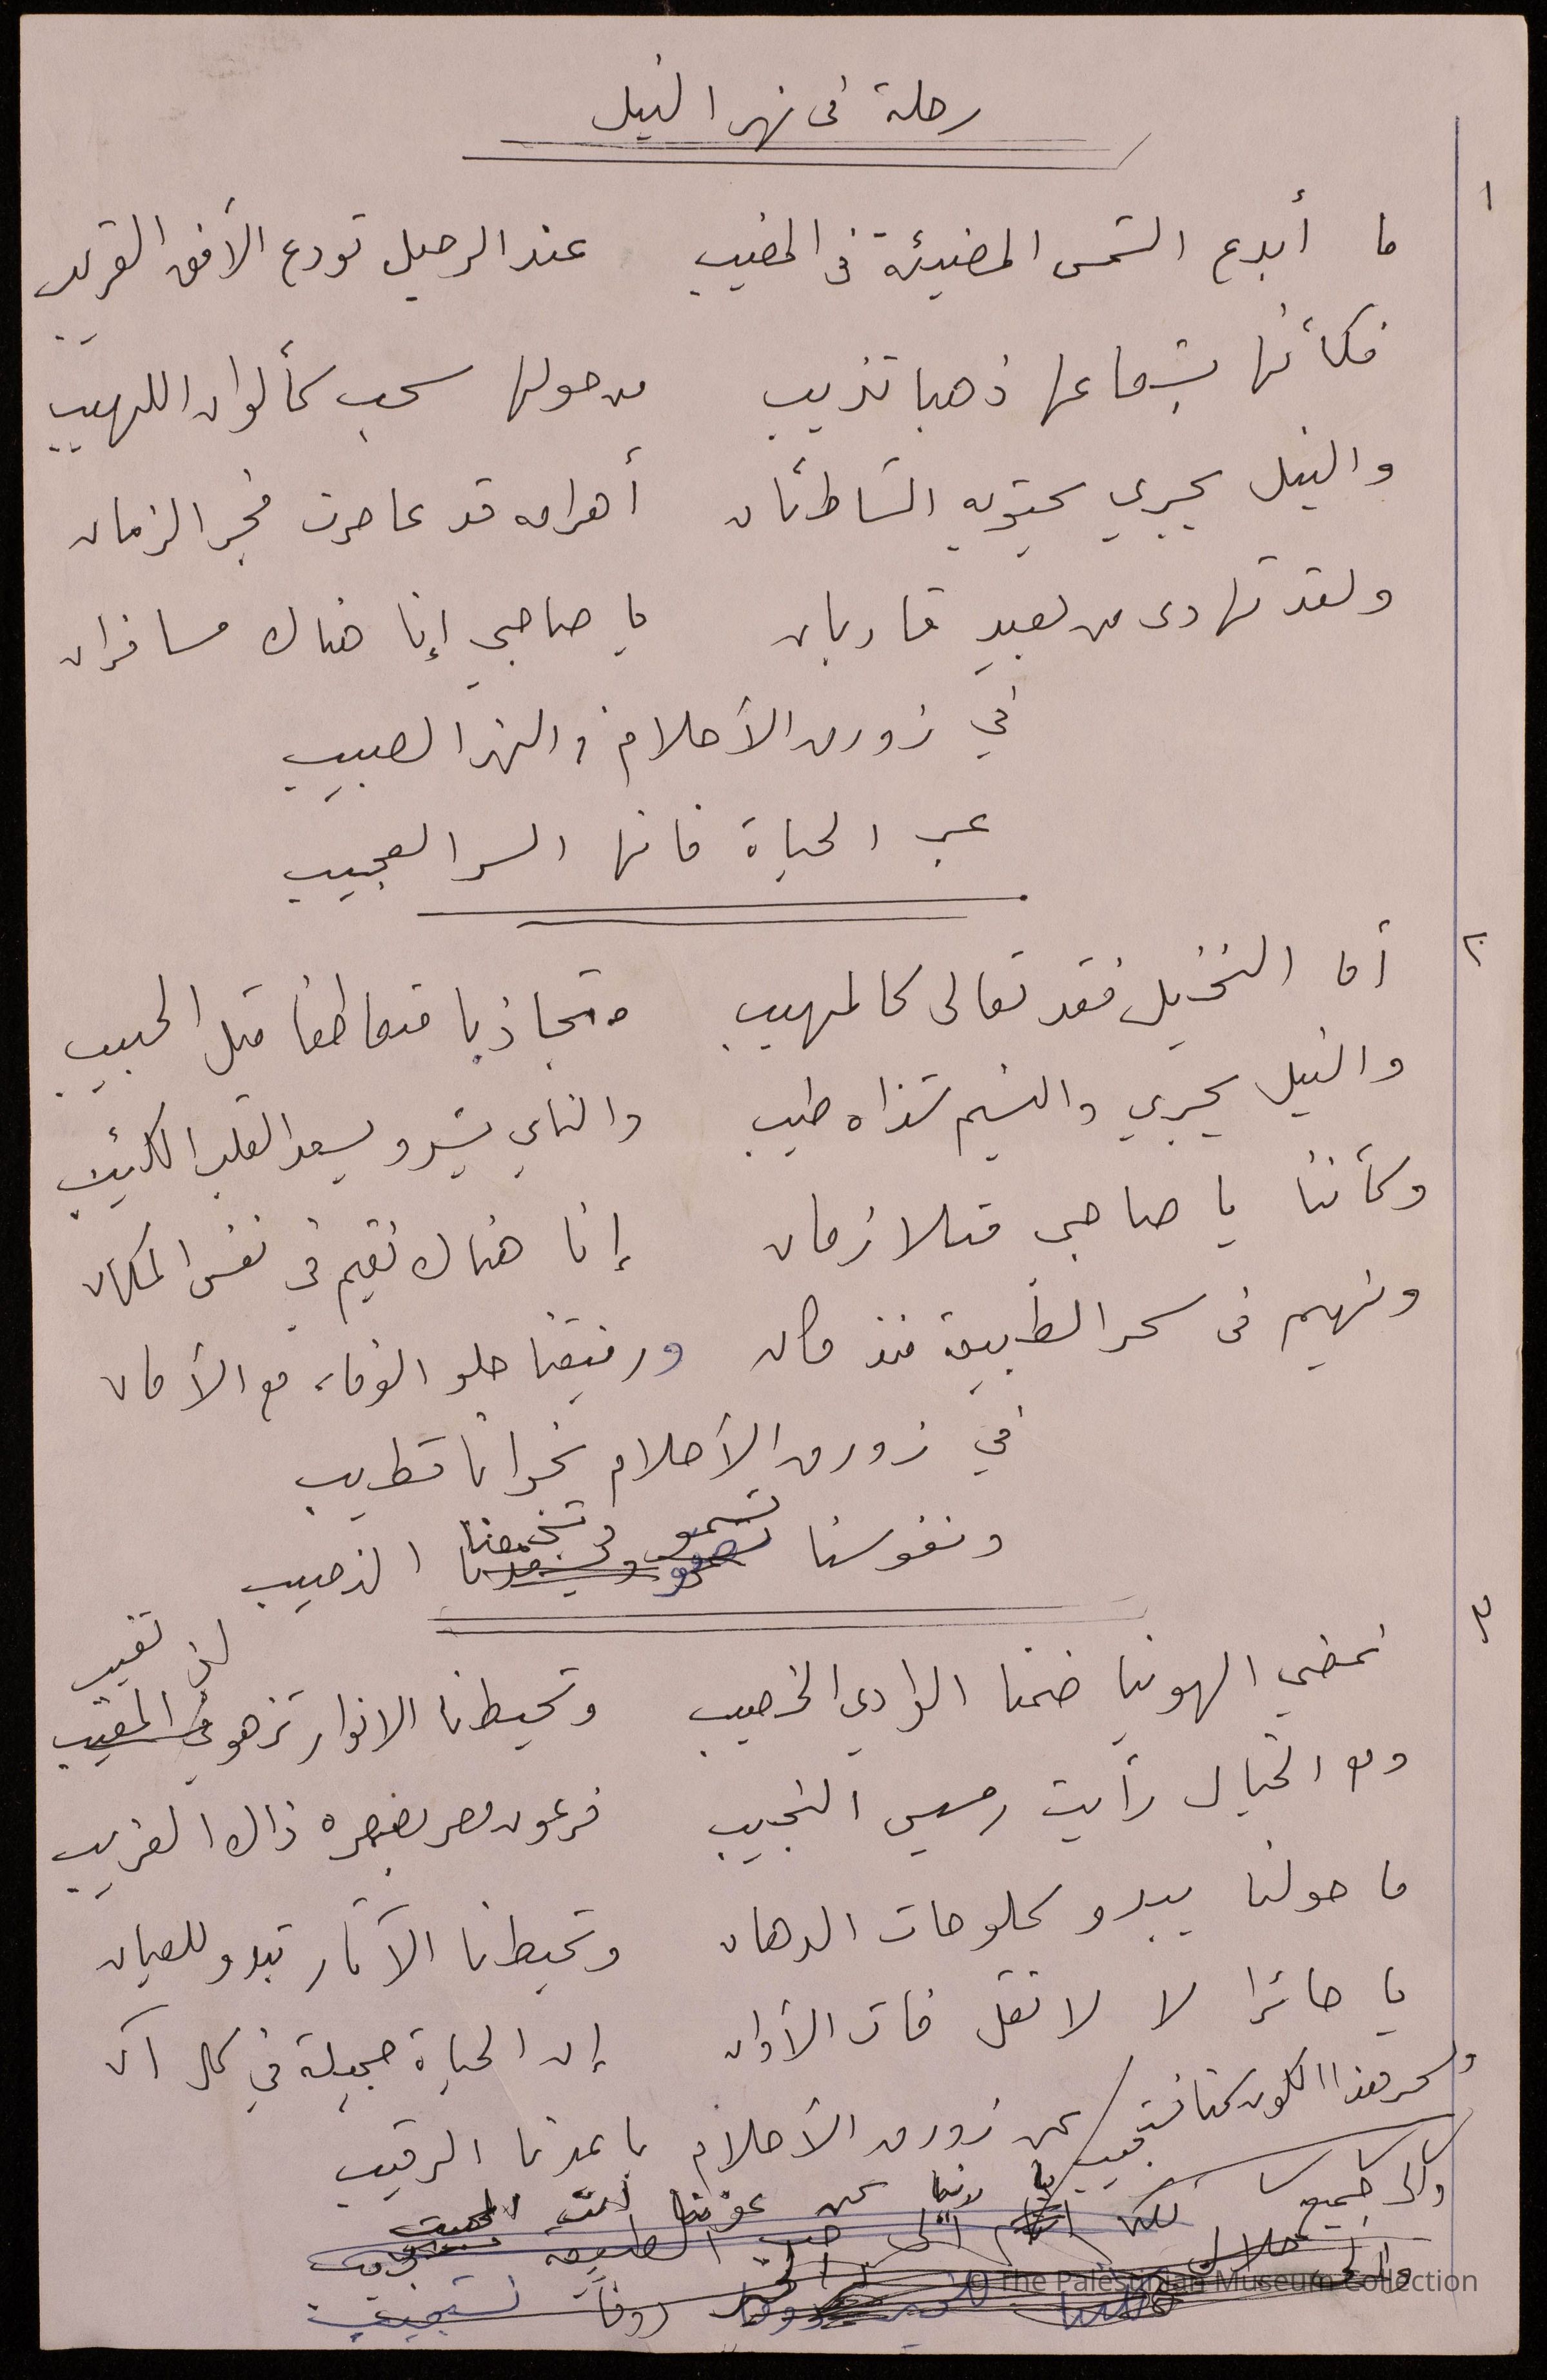 رحلة فى نهر النيل
١
ما أبدع الشمس المضيئة فى المغيب عند الرحيل تودع الأفق القريب
فكأنها بشعاعها ذهبا تذيب من حولها سحب كألوان اللهيب
والنيل يجري يحتويه الشاطئان أهرامه قد عاصرت فجر الزمان
ولقد تهادى من بعيد قاربان يا صاحبي إنا هناك مسافران
في زورق الأحلام والنهر الحبيب
عبر الحياة فانها السر العجيب
٢
أما النخيل فقد تعالى كالمهيب متجاذبا متعاطفا مثل الحبيب
والنيل يجري والنسيم شذاه طيب والناي يشدو يسعد القلب الكئيب
وكأننا يا صاحبى متلازمان إنا هناك نقيم فى نفس المكان
ونهيم فى سحر الطبيعة منذ كان ورفيقنا حلو الوفاء مع الأمان
في زورق الأحلام نجوانا تطيب
ونفوسنا تسمو وتجمعنا الرحيب
٣
نمضي الهوينا ضمنا الوادي الخصيب وتحيطنا الانوار تزهو لن تغيب
ومع الخيال رأيت رمسيس النجيب فرعون مصر بقصره ذاك الغريب
ما حولنا يبدو كلوحات الدهان وتحيطنا الآثار تبدو للعيان
يا حائرا لا لا تقل فات الأوان إن الحياة جميلة في كل آن
عن زورق الأحلام باعدنا الرقيب
ولسحر هذا الكون كنا نستجيب
© The Palestinian Museum Collection